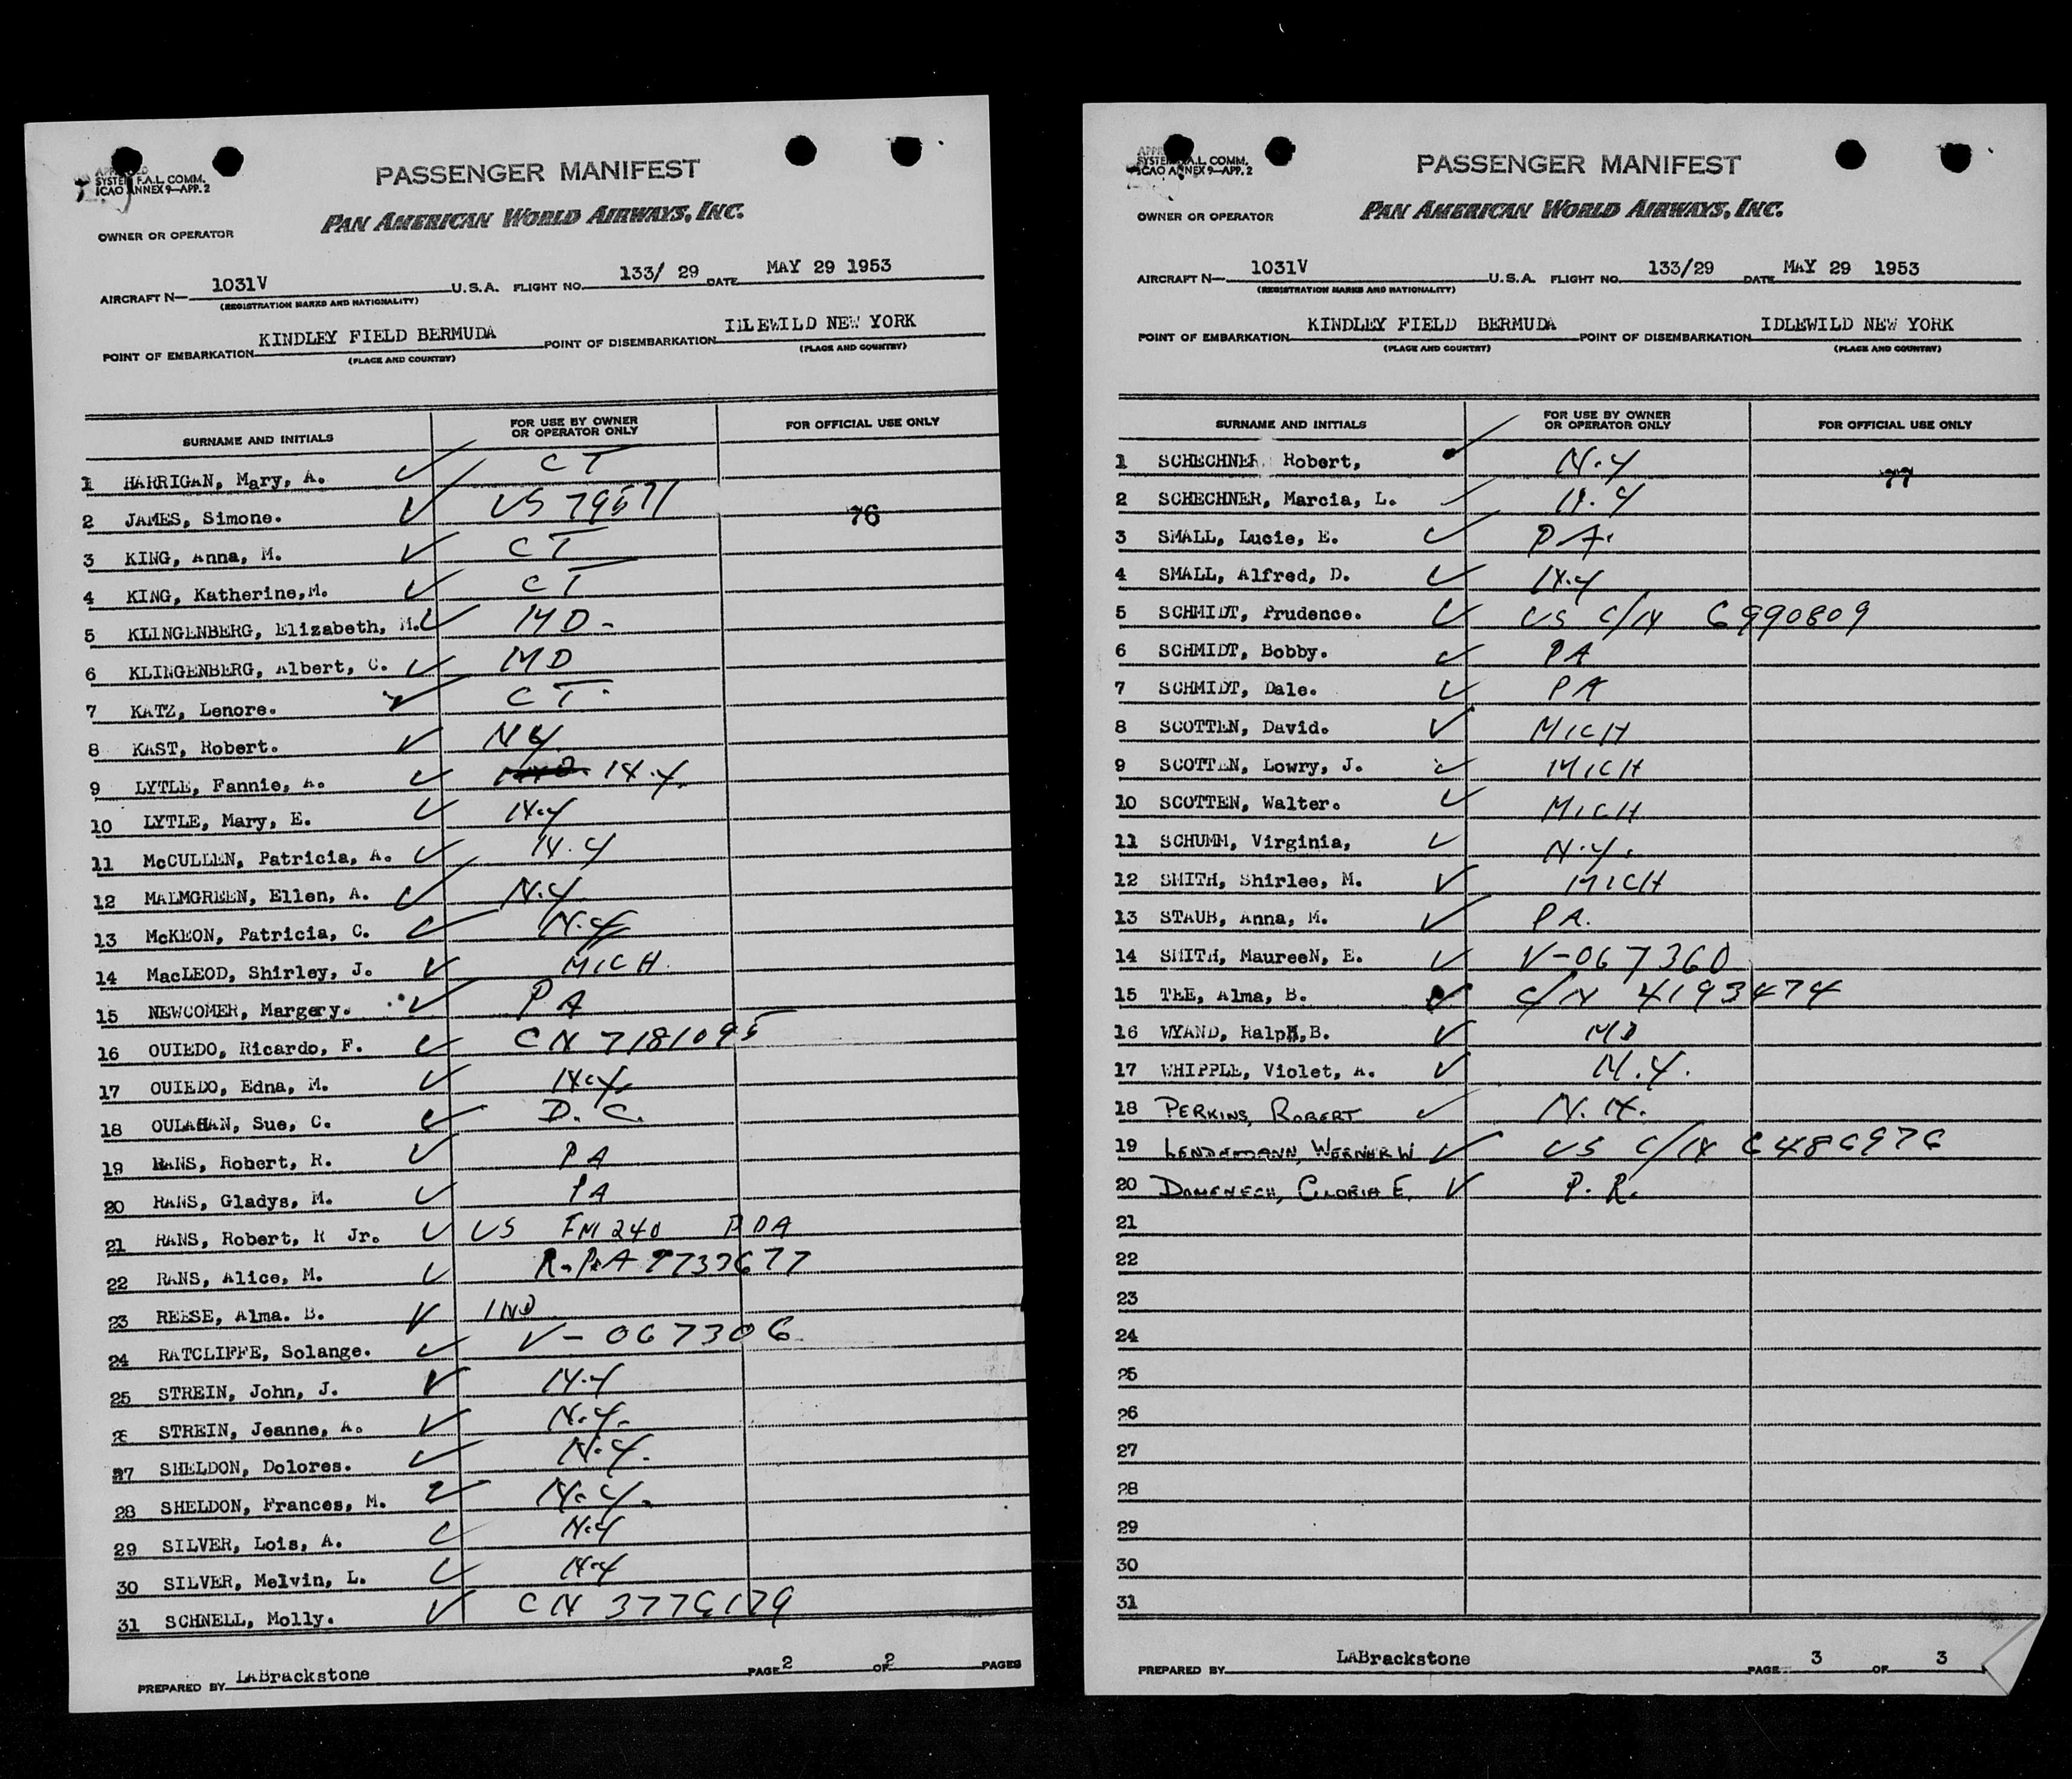 SYSTEM F.A.L. COMM.
ICAO ANNEX 9—APP. 2
PASSENGER MANIFEST
PAN AMERICAN WORLD AIRWAYS, INC.
OWNER OR OPERATOR
AIRCRAFT N— 1031V U.S.A. FLIGHT NO. 133/ 29 DATE MAY 29 1953
(REGISTRATION MARKS AND NATIONALITY)
POINT OF EMBARKATION KINDLEY FIELD BERMUDA POINT OF DISEMBARKATION IDLEWILD NEW YORK
(PLACE AND COUNTRY) (PLACE AND COUNTRY)
SURNAME AND INITIALS FOR USE BY OWNER OR OPERATOR ONLY FOR OFFICIAL USE ONLY
1 HARRIGAN, Mary, A. ✓ CT
2 JAMES, Simone. ✓ US 79571 76
3 KING, Anna, M. ✓ CT
4 KING, Katherine,M. ✓ CT
5 KLINGENBERG, Elizabeth, M. ✓ MD-
6 KLINGENBERG, Albert, C. ✓ MD
7 KATZ, Lenore. ✓ CT.
8 KAST, Robert. ✓ NY
9 LYTLE, Fannie, A. ✓ N.Y.
10 LYTLE, Mary, E. ✓ N.Y
11 McCULLEN, Patricia, A. ✓ N.Y
12 MALMGREEN, Ellen, A. ✓ N.Y
13 McKEON, Patricia, C. ✓ N.Y
14 MacLEOD, Shirley, J. ✓ MICH.
15 NEWCOMER, Margery. ✓ PA
16 OUIEDO, Ricardo, F. ✓ CN 7181095
17 OUIEDO, Edna, M. ✓ N.Y.
18 OULAHAN, Sue, C. ✓ D.C.
19 RANS, Robert, R. ✓ PA
20 RANS, Gladys, M. ✓ PA
21 RANS, Robert, R Jr. ✓ US FM 240 BDA
22 RANS, Alice, M. ✓ 7733677
23 REESE, Alma. B. ✓ IND
24 RATCLIFFE, Solange. ✓ V-067306
25 STREIN, John, J. ✓ N.Y
26 STREIN, Jeanne, A. ✓ N.Y.
27 SHELDON, Dolores. ✓ N.Y.
28 SHELDON, Frances, M. ✓ N.Y.
29 SILVER, Lois, A. ✓ N.Y
30 SILVER, Melvin, L. ✓ N.Y
31 SCHNELL, Molly. ✓ CN 3776179
PREPARED BY LABrackstone PAGE 2 OF 2 PAGES
SYSTEM F.A.L. COMM.
ICAO ANNEX 9—APP. 2
PASSENGER MANIFEST
PAN AMERICAN WORLD AIRWAYS, INC.
OWNER OR OPERATOR
AIRCRAFT N— 1031V U.S.A. FLIGHT NO. 133/29 DATE MAY 29 1953
(REGISTRATION MARKS AND NATIONALITY)
POINT OF EMBARKATION KINDLEY FIELD BERMUDA POINT OF DISEMBARKATION IDLEWILD NEW YORK
(PLACE AND COUNTRY) (PLACE AND COUNTRY)
SURNAME AND INITIALS FOR USE BY OWNER OR OPERATOR ONLY FOR OFFICIAL USE ONLY
1 SCHECHNER, Robert, ✓ N.Y
77
2 SCHECHNER, Marcia, L. ✓ N.Y
3 SMALL, Lucie, E. ✓ PA.
4 SMALL, Alfred, D. ✓ N.Y
5 SCHMIDT, Prudence. ✓ US C/N 6990809
6 SCHMIDT, Bobby. ✓ PA
7 SCHMIDT, Dale. ✓ PA
8 SCOTTEN, David. ✓ MICH
9 SCOTTEN, Lowry, J. ✓ MICH
10 SCOTTEN, Walter. ✓ MICH
11 SCHUMM, Virginia, ✓ N.Y.
12 SMITH, Shirlee, M. ✓ MICH
13 STAUB, Anna, M. ✓ PA.
14 SMITH, MaureeN, E. ✓ V-067360
15 TEE, Alma, B. ✓ C/N 4193474
16 WYAND, Ralph,B. ✓ MD
17 WHIPPLE, Violet, A. ✓ N.Y.
18 PERKINS, ROBERT ✓ N.H.
19 WERNER W ✓ US C/N 6486976
20 DOMENECH, GLORIA E. ✓ P.R.
21
22
23
24
25
26
27
28
29
30
31
PREPARED BY LABrackstone PAGE 3 OF 3